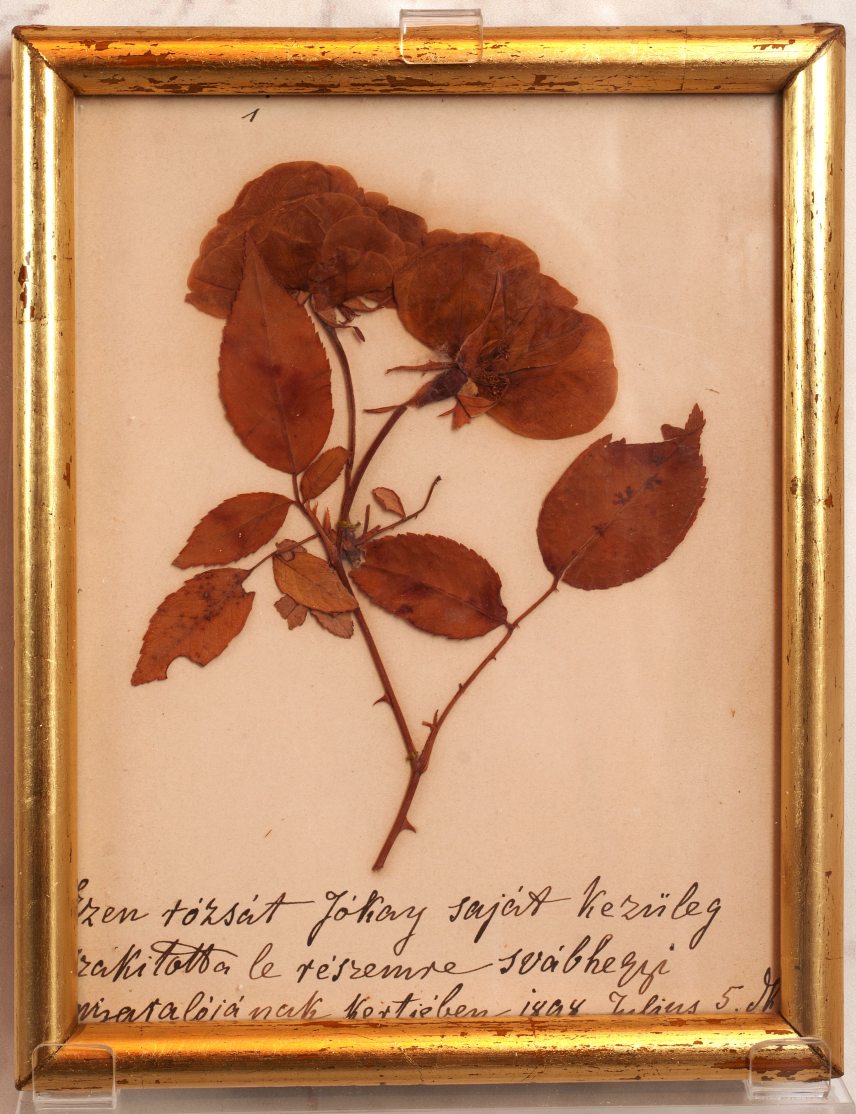 1
Ezen rózsát Jókay saját kezüleg
szakitotta le részemre svábhegyi
nyaralójának kertjében 1898 Julius 5.